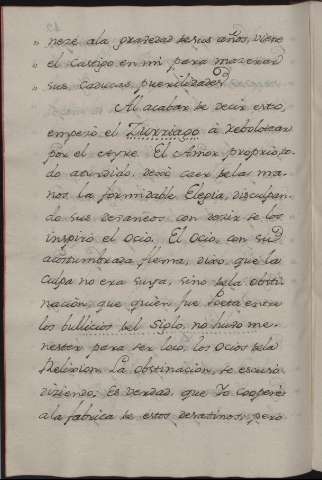 " nece ala gravedad de sus años, viene
" el castigo en mi pena mazerar
" sus caducas puerilidades
Al acabar de decir esto,
empezó el Zurriago à rebolotear
por el ayre. El Amor proprio, to-
do aturdido, dexó caer de la ma-
nos la formidable Elegia, disculpan-
do sus desaneos con decir se los
inspiró el Ocio. El Ocio, con su
acostumbrada flema, dixo, que la
culpa no era suya, sino de la obsti-
nación, que quien fue Poeta entre
los bullicios del Siglo, no huvo me-
nester para ser loco, los ocios de la
Relixion. La obstinación, se escusó
diziendo: Es verdad, que Yo cooperè
a la fabrica de estos desatinos, pero